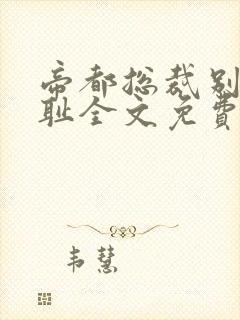 帝都总裁别
耻全文免费
韦慧